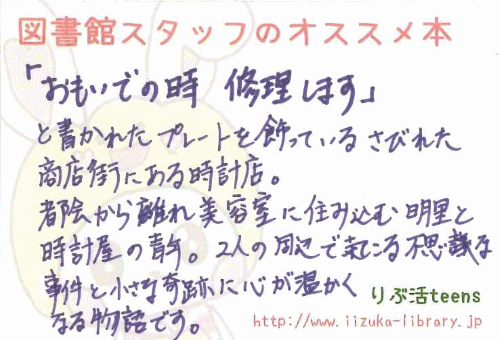 図書館スタッフのオススメ本
「おもいでの時 修理します」
と書かれたプレートを飾っているさびれた
商店街にある時計店。
都会から離れ美容室に住み込む明里と
時計屋の青年。2人の周辺で起こる不思議な
事件と小さな奇跡に心が温かく
なる物語です。
りぶ活teens
http://www.iizuka-library.jp